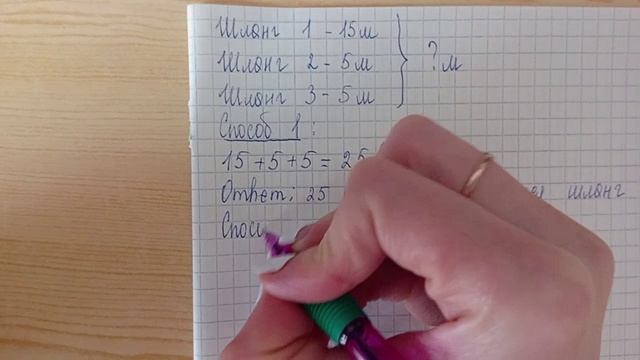 Шланг 1 - 15м
Шланг 2 - 5м
Шланг 3 - 5м
? м
Способ 1:
15+5+5=25
Ответ: 25 шланг
Спос